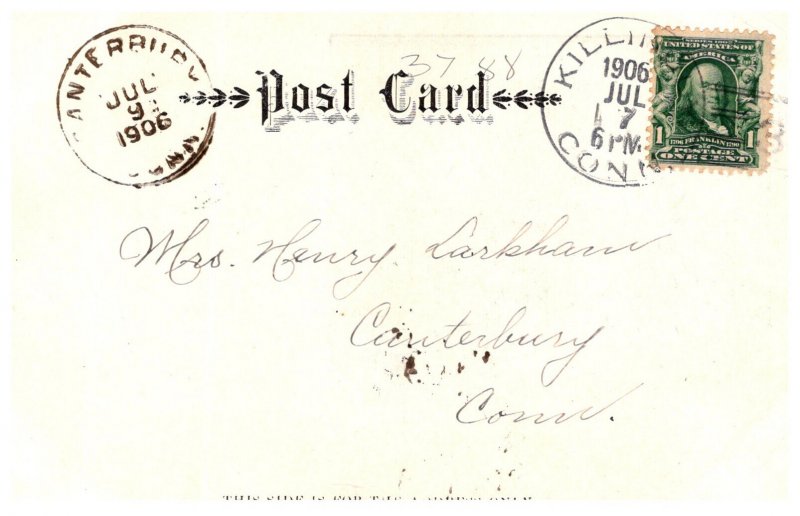 CANTERBURY
JUL
9
1906
CONN.
3788
Post Card
KILLIN
1906
JUL
7
6 PM
CONN.
SERIES 1902
UNITED STATES OF
AMERICA
1 1790 FRANKLIN 1790 1
POSTAGE
ONE CENT
Mrs. Henry Larkham
Canterbury
Conn.
THIS SIDE IS FOR THE ADDRESS ONLY